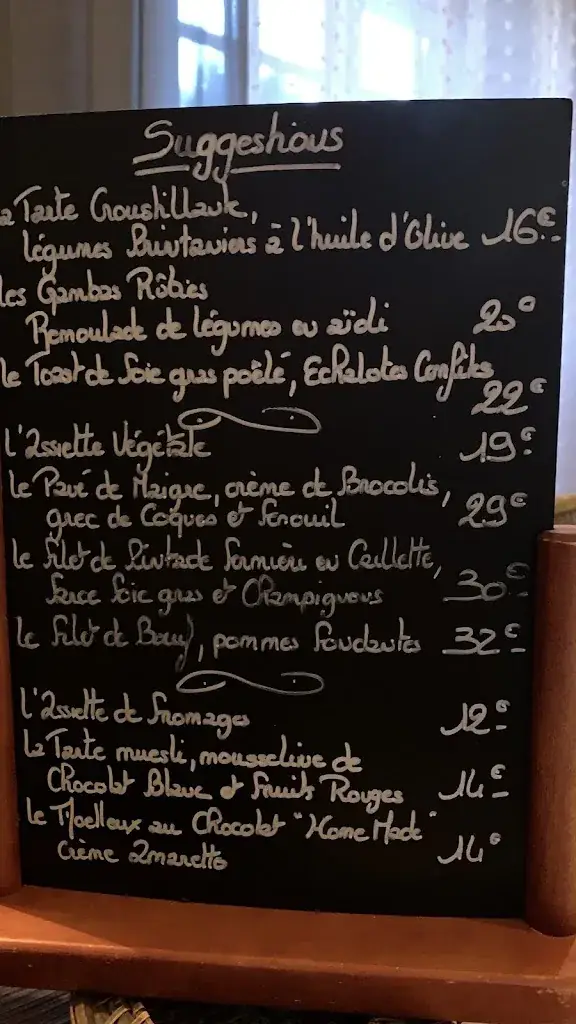 Suggestions
La Tarte Croustillante,
légumes Printaniers à l'huile d'Olive 16€
les Gambas Rôties
Remoulade de légumes en aïoli 20€
le Toast de foie gras poêlé, Echalotes Confites
22€
l'Assiette Végétale 19€
le Pavé de Maigre, crème de Brocolis,
grec de Coques et Fenouil 29€
le filet de Pintade fermière en Caillette,
sauce foie gras et Champignons 30€
le filet de Bœuf, pommes fondantes 32€
l'Assiette de fromages 12€
La Tarte muesli, mousseline de
Chocolat Blanc et fruits Rouges 14€
le Moelleux au Chocolat "Home Made"
crème Amaretto 14€